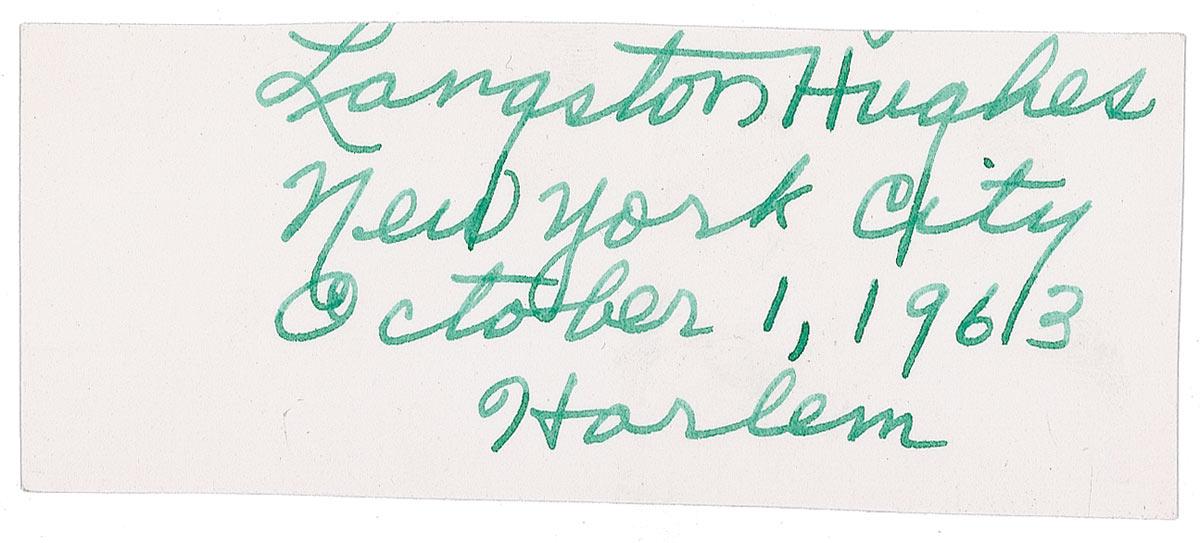 Langston Hughes
New York City
October 1, 1963
Harlem